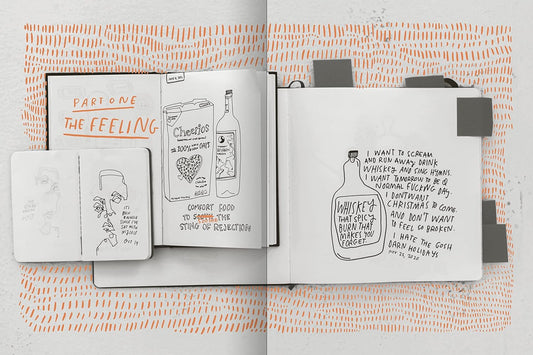 PART ONE
THE FEELING
Cheerios
THE 100% WHOLE OATS
COMFORT FOOD
TO THE
STING OF REJECTION
WHISKEY
THAT SPICY
BURN THAT
MAKES YOU
FORGET.
I WANT TO SCREAM
AND RUN AWAY. DRINK
WHISKEY AND SING HYMNS.
I WANT TOMORROW TO BE A
NORMAL FUCKING DAY.
I DON'T WANT
CHRISTMAS TO COME.
AND DON'T WANT
TO FEEL SO BROKEN.
I HATE THE GOSH
DARN HOLIDAYS
NOV. 23, 2020